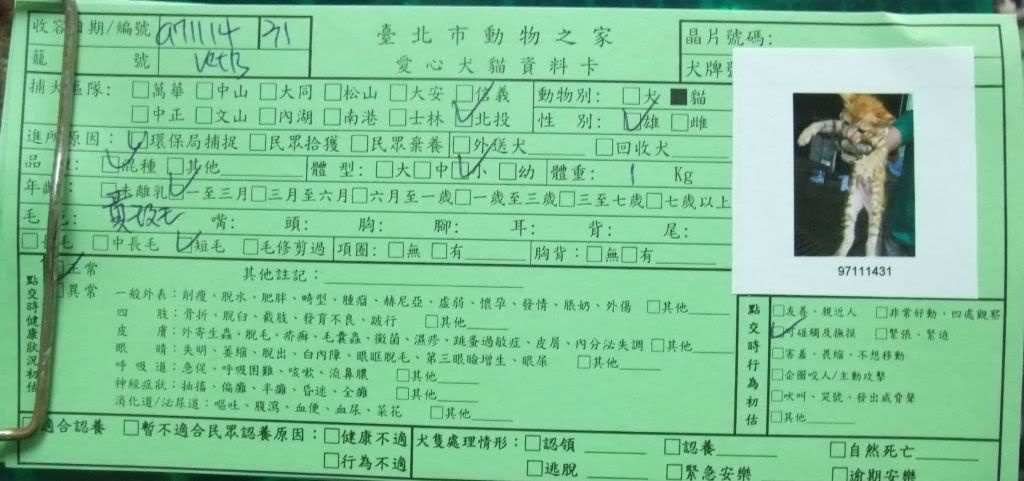 收容日期/編號 971114 31
臺北市動物之家
晶片號碼:
籠 號
愛心犬貓資料卡
犬牌號
捕犬區隊: □萬華 □中山 □大同 □松山 □大安 □信義
動物別: □犬 ■貓
□中正 □文山 □內湖 □南港 □士林 ☑北投
性 別: ☑雄 □雌
進所原因: ☑環保局捕捉 □民眾拾獲 □民眾棄養 □外送犬 □回收犬
品 ☑混種 □其他 體 型: □大 □中 ☑小 □幼 體重: 1 Kg
年齡 □未離乳 ☑一至三月 □三月至六月 □六月至一歲 □一歲至三歲 □三至七歲 □七歲以上
毛 嘴: 頭: 胸: 腳: 耳: 背: 尾:
□長毛 □中長毛 ☑短毛 □毛修剪過 項圈: □無 □有 胸背: □無 □有
97111431
點交時健康狀況初估
☑正常
□異常
其他註記:
一般外表: 削瘦、脫水、肥胖、畸型、腫瘤、赫尼亞、虛弱、懷孕、發情、脹奶、外傷 □其他
四 肢: 骨折、脫臼、截肢、發育不良、跛行 □其他
皮 膚: 外寄生蟲、脫毛、疥癬、毛囊蟲、黴菌、濕疹、跳蚤過敏症、皮屑、內分泌失調 □其他
眼 睛: 失明、萎縮、脫出、白內障、眼眶脫毛、第三眼瞼增生、眼屎 □其他
呼 吸 道: 急促、呼吸困難、咳嗽、流鼻膿 □其他
神經症狀: 抽搐、偏癱、半癱、昏迷、全癱 □其他
消化道/泌尿道: 嘔吐、腹瀉、血便、血尿、菜花 □其他
點交時行為初估
□友善、親近人 □非常好動、四處觀察
☑可碰觸及撫摸 □緊張、緊迫
□害羞、畏縮、不想移動
□企圖咬人/主動攻擊
□吠叫、哭號、發出威脅聲
□其他
適合認養 □暫不適合民眾認養原因: □健康不適
□行為不適
犬隻處理情形: □認領 □認養 □自然死亡
□逃脫 □緊急安樂 □逾期安樂